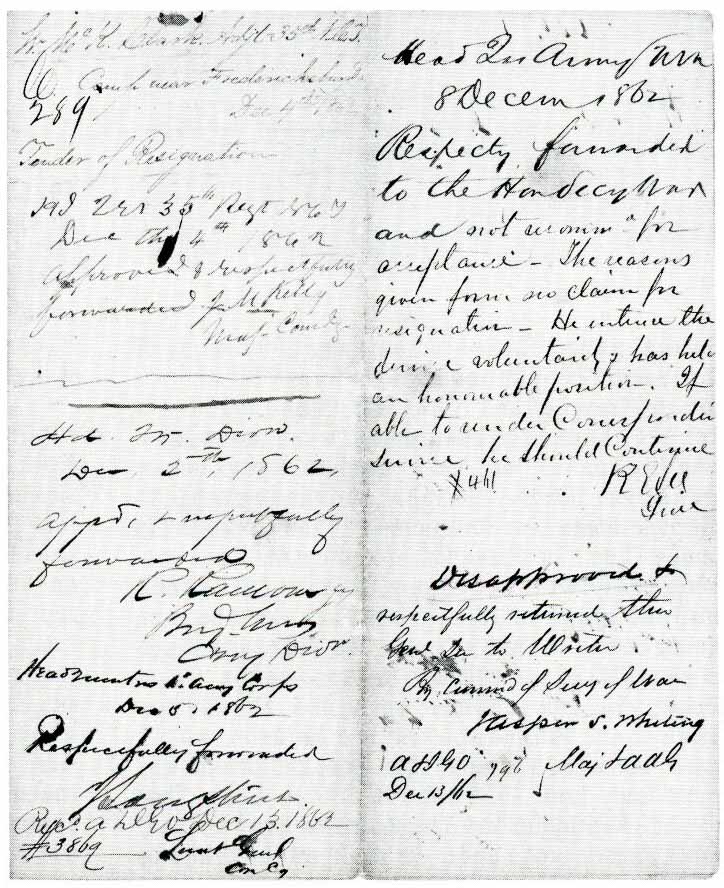 Wm McK. Clark. Adjt 35th
Camp near Fredericksburg
Dec 4th 1862
289
Tender of Resignation
Hd Qrs 35th Regt
Dec the 4th 1862
approved & respectfully
forwarded J. M. Kelly
Maj. Comdg
Hd. Qr. Divn.
Dec. 5th, 1862,
appd, & respectfully
forwarded
R. Ransom Jr
Brig. Genl
Comg Divn.
Headquarters 1st Army Corps
Dec 5, 1862
Respectfully forwarded
Longstreet
Recd. A & IGO Dec 13. 1862
#3869
Lieut Genl
Com Cg
Head Qrs Army NVa
8 Decem 1862
Respecty forwarded
to the Hon Secy War
and not recommd for
acceptance - The reasons
given form no claim for
resignation - He entered the
service voluntarily & has held
an honourable position. If
able to render Corresponding
Service he should Continue
R E Lee
Genl
Disapproved &
respectfully returned thro
Genl Lee to Writer
By Command of Secy of War
Jasper S. Whiting
A & IGO
Maj & AAG
Dec 13/62